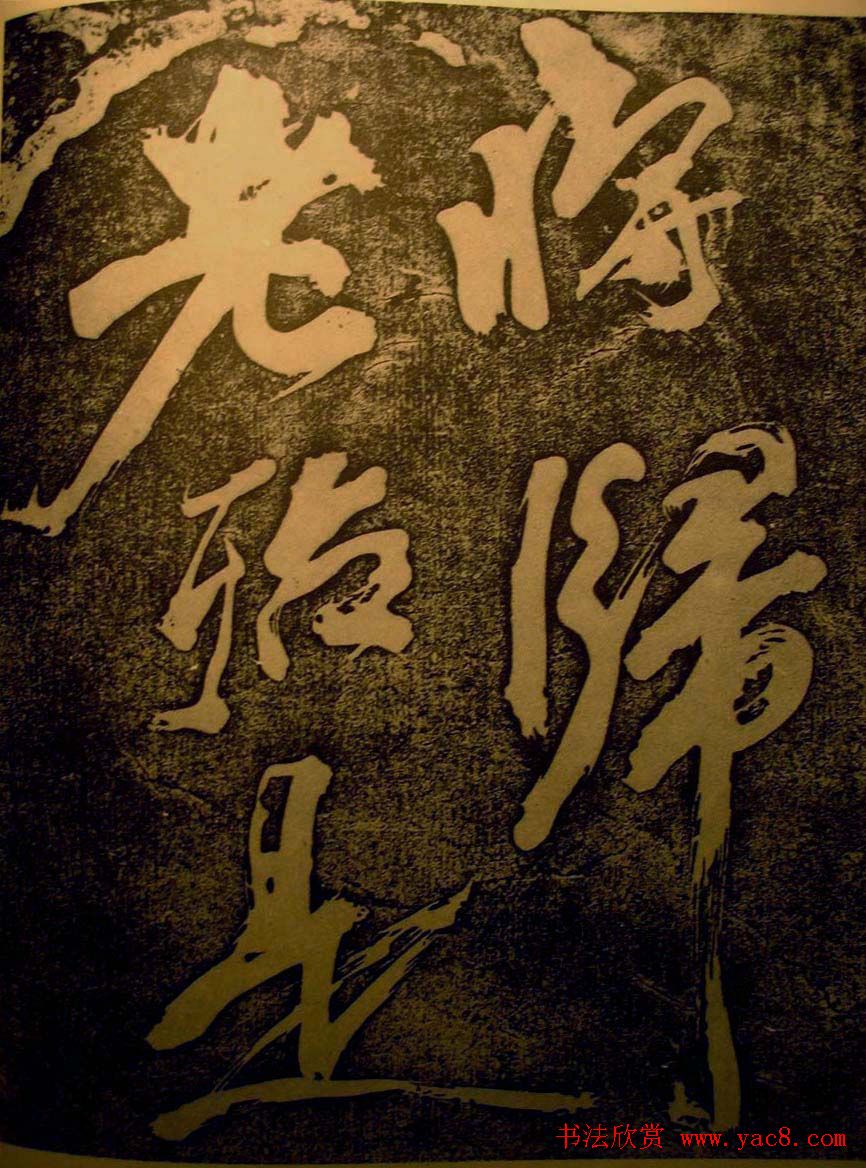 將歸
老於
书法欣赏 www.yac8.com